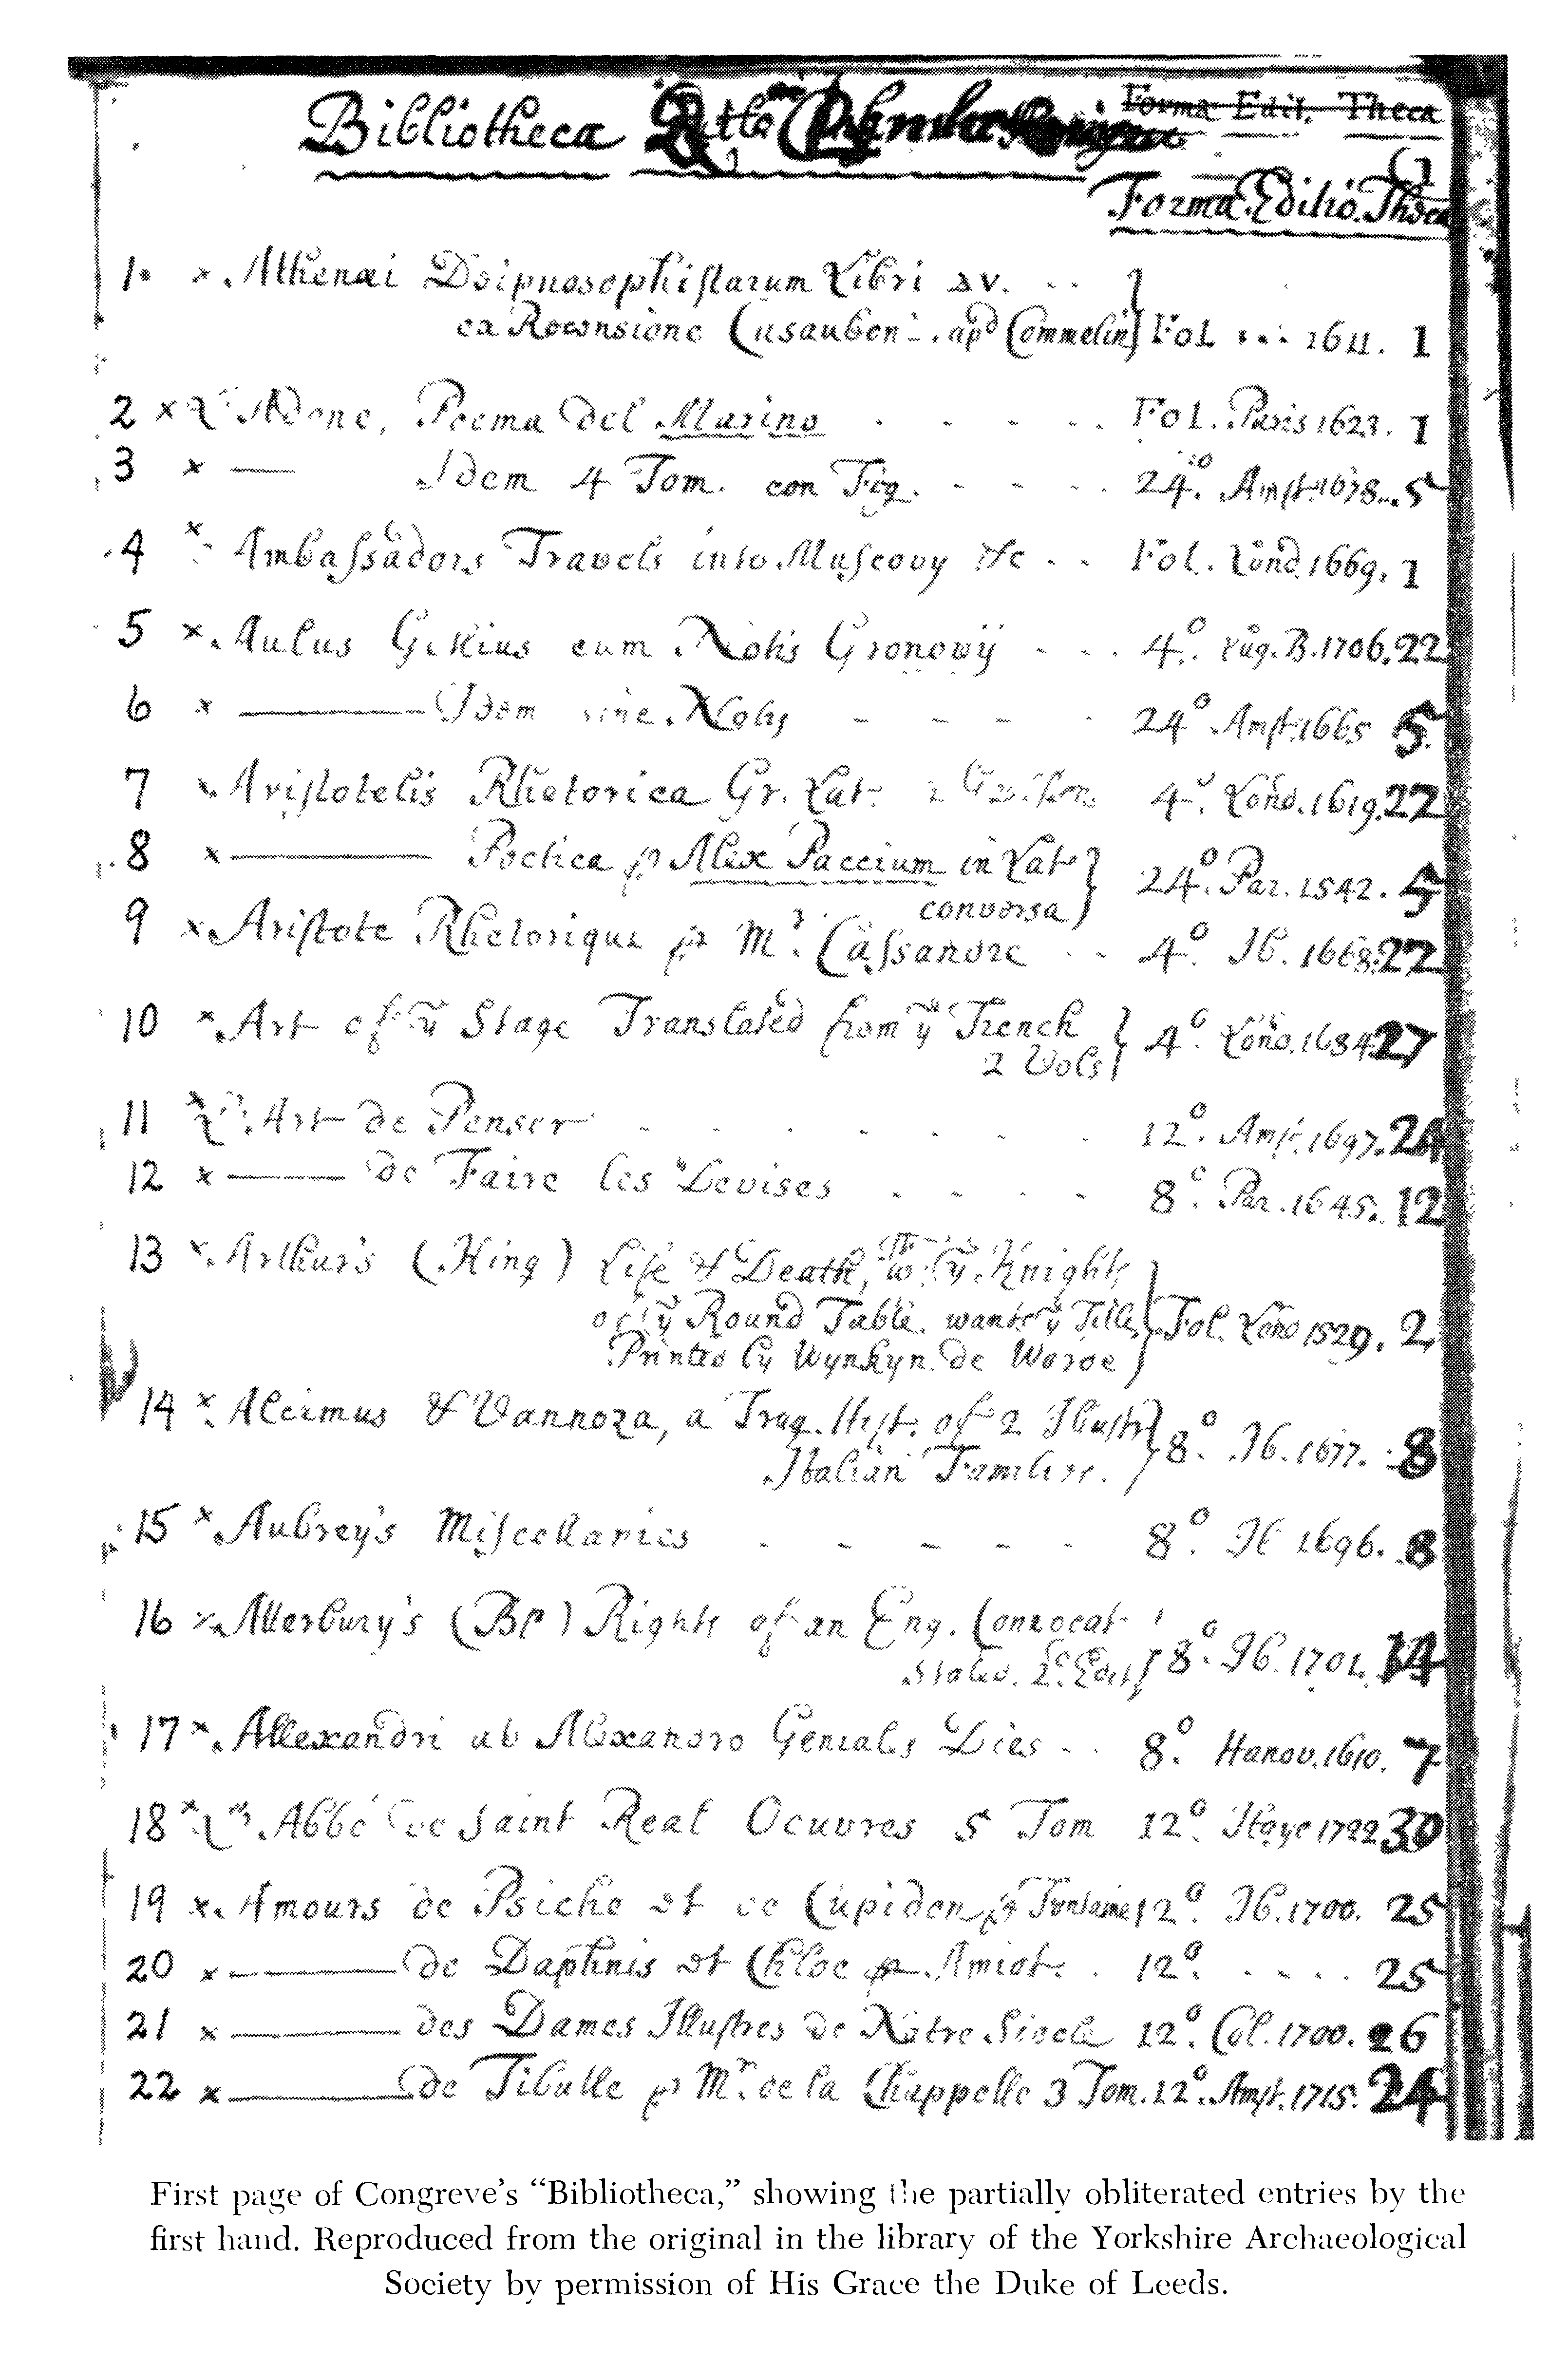 Bibliotheca
Forma Edit. Theca
Forma. Editio. Theca
1. x. Athenæi Deipnosophistarum Libri xv. - - }
ex Recensione Casaubon . apd Commelin } Fol. ... 1611. 1
2 x L'Adone, Poema del Marino - - - - - Fol. Paris 1623. 1
3 x — Idem 4 Tom. con Fig. - - - - 24.o Amst. 1678. 5
4 x Ambassadors Travels into Muscovy &c - - Fol. Lond 1669. 1
5 x. Aulus Gellius cum Notis Gronovij - - - 4.o Lug. B. 1706. 22
6 x — Idem sine Notis - - - - 24o Amst. 1665 5
7 x Aristotelis Rhetorica Gr. Lat. 4.o Lond. 1619. 22
8 x — Poetica p Alex Paccium in Lat } 24.o Par. 1542. 5
conversa }
9 x. Aristote Rhetorique pr Mr. Cassandre - - 4.o Ib. 22
10 x. Art of ye Stage Translated from ye French } 4.o Lond. 1684 27
2 Vols }
11 x L'Art de Penser - - - - - - - 12o. Amst. 1697. 24
12 x — de Faire les Devises - - - - 8o. Par. 1645. 12
13 x. Arthur's (King) Life & Death, wth ye Knights }
of ye Round Table. wants ye Title } Fol. Lond 1529. 2
Printed by Wynkyn de Worde }
14 x. Alcimus & Vannoza, a Trag. Hist. of 2 Illustr } 8.o Ib. 1677. 8
Italian Families. }
15 x. Aubrey's Miscellanies - - - - - 8o. Ib 1696. 8
16 x. Atterbury's (Bp) Rights of an Eng. Convocat }
Stated. 2d. Edit } 8.o Ib. 1701. 14
17 x. Allexandri ab Alexandro Geniales Dies - - 8.o Hanov. 1610. 7
18 x Abbé de Saint Real Oeuvres 5 Tom 12.o Haye 1722 30
19 x. Amours de Psiche et de Cupidon pr Fontaine 12.o Ib. 1700. 25
20 x — de Daphnis et Chloe pr Amiot. . 12o. - - - - 25
21 x — des Dames Illustres de Notre Siecle 12.o Col. 1700. 26
22 x — de Tibulle pr Mr. de la Chappelle 3 Tom. 12o. Amst. 1715. 24
First page of Congreve's “Bibliotheca,” showing the partially obliterated entries by the
first hand. Reproduced from the original in the library of the Yorkshire Archaeological
Society by permission of His Grace the Duke of Leeds.